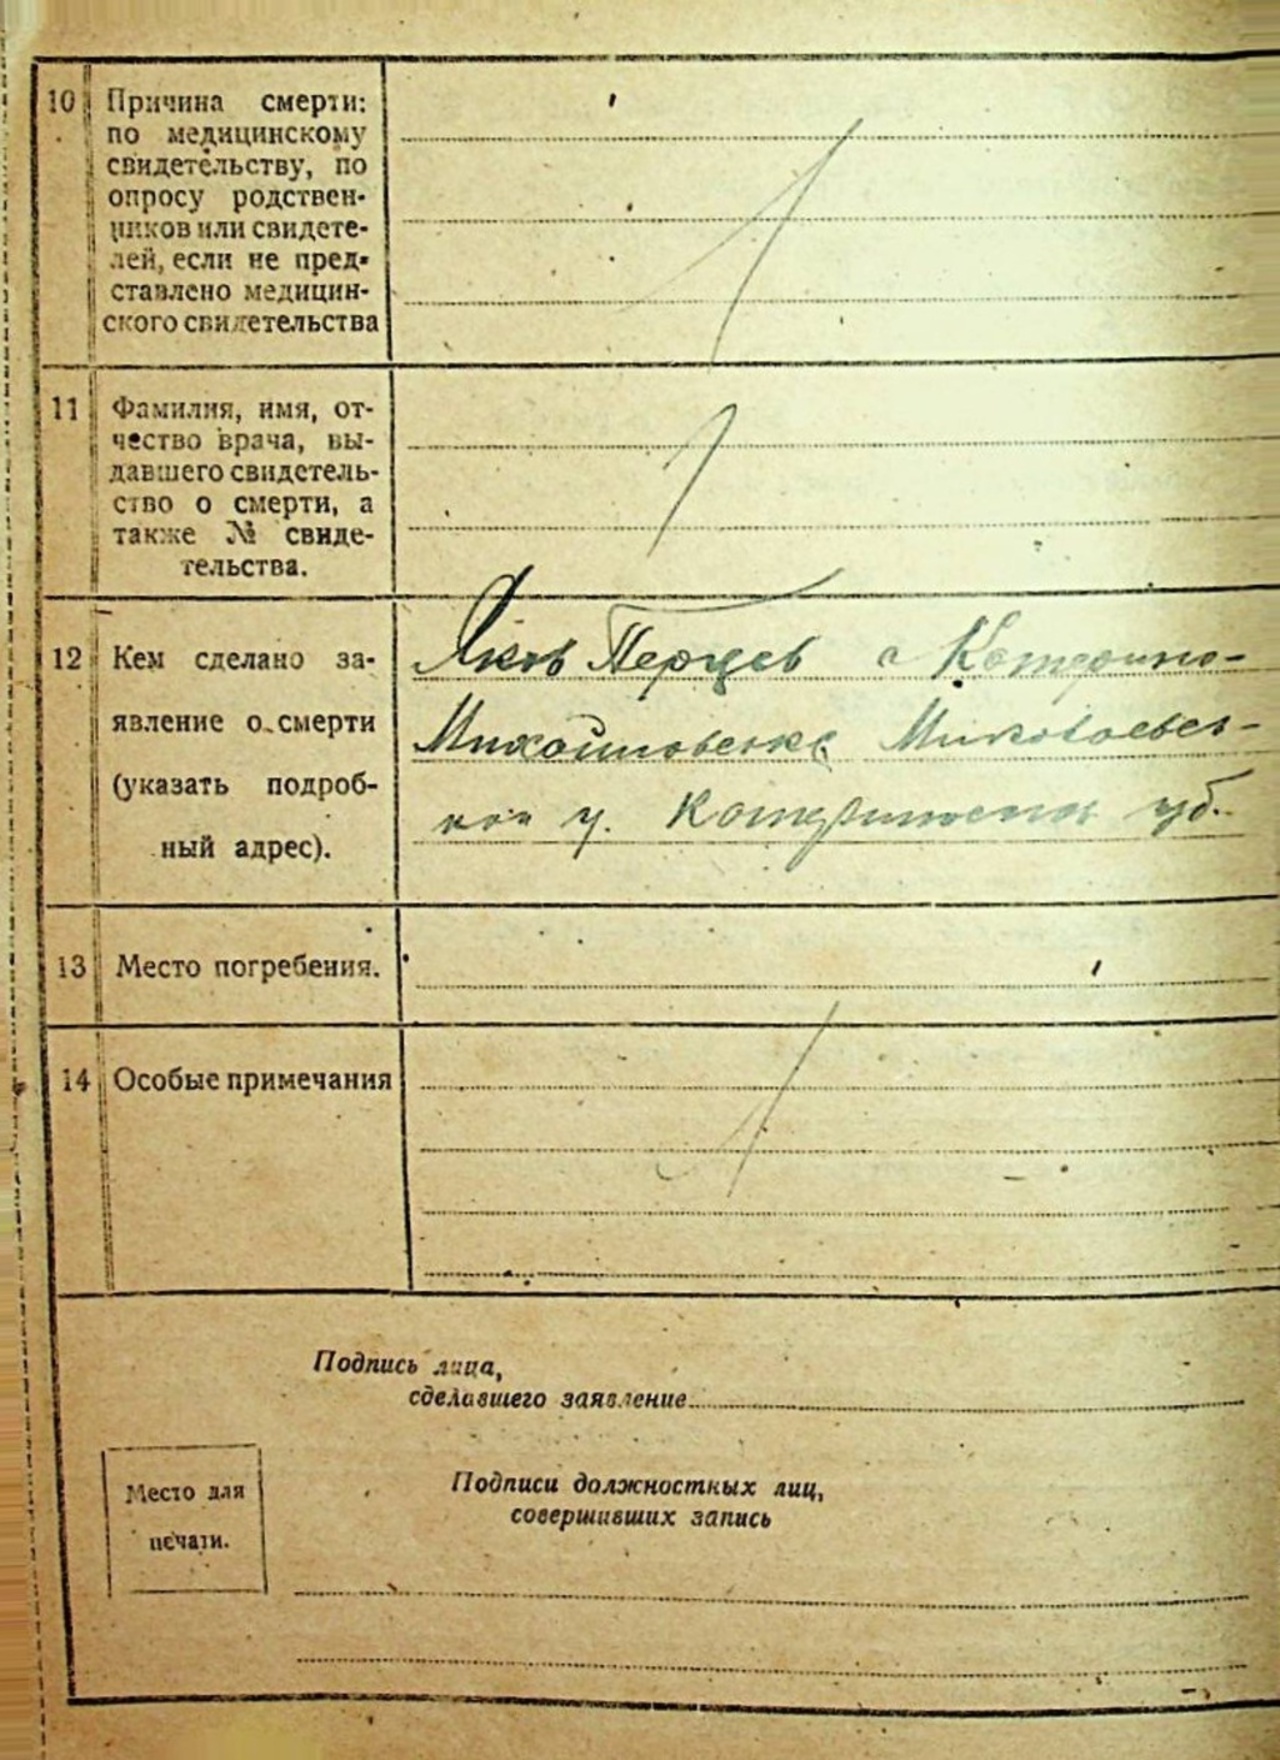 10 Причина смерти:
по медицинскому
свидетельству, по
опросу родствен-
ников или свидете-
лей, если не пред-
ставлено медицин-
ского свидетельства
11 Фамилия, имя, от-
чество врача, вы-
давшего свидетель-
ство о смерти, а
также № свиде-
тельства.
12 Кем сделано за-
явление о смерти
(указать подроб-
ный адрес).
Яков Перцев
13 Место погребения.
14 Особые примечания
Подпись лица,
сделавшего заявление
Место для
печати.
Подписи должностных лиц,
совершивших запись